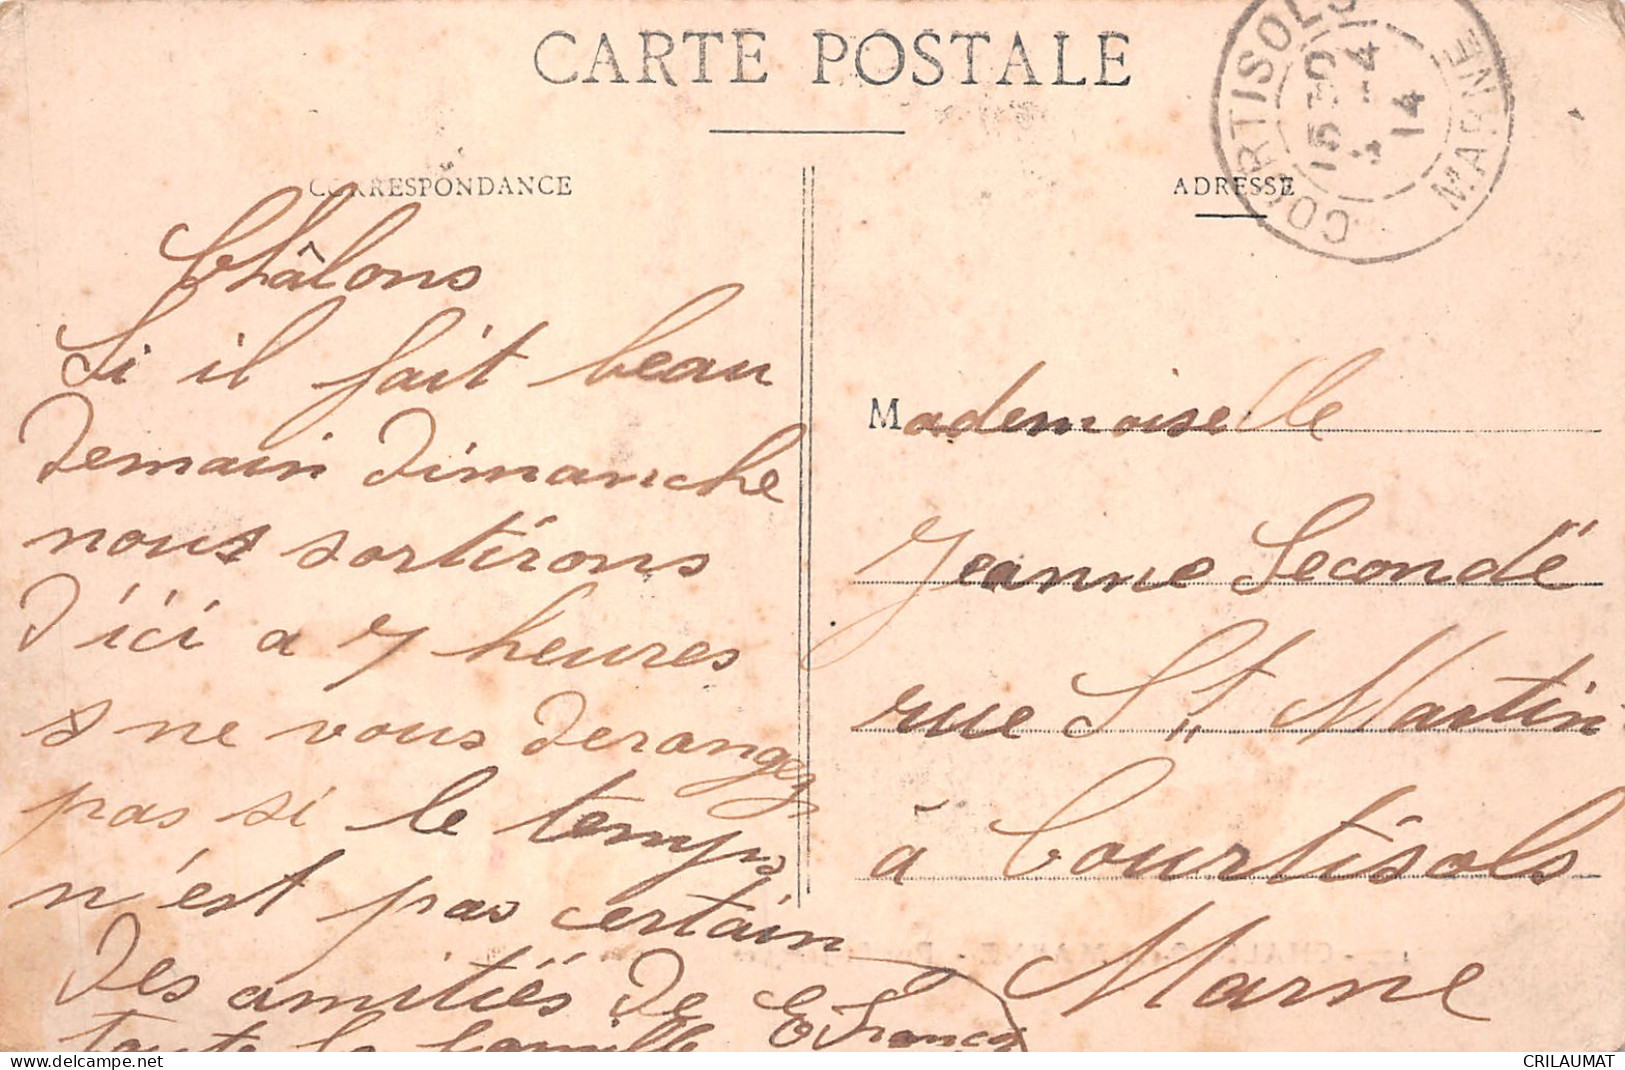 CARTE POSTALE
CORRESPONDANCE
ADRESSE
COURTISOLS
15 30
4 -4
14
MARNE
Châlons
Si il fait beau
demain dimanche
nous sortirons
d'ici a 7 heures
ne vous derangez
pas si le temps
n'est pas certain
des amitiés de
toute la famille
Mademoiselle
Jeanne Secondé
rue St Martin
à Courtisols
Marne
delcampe.net
CRILAUMAT